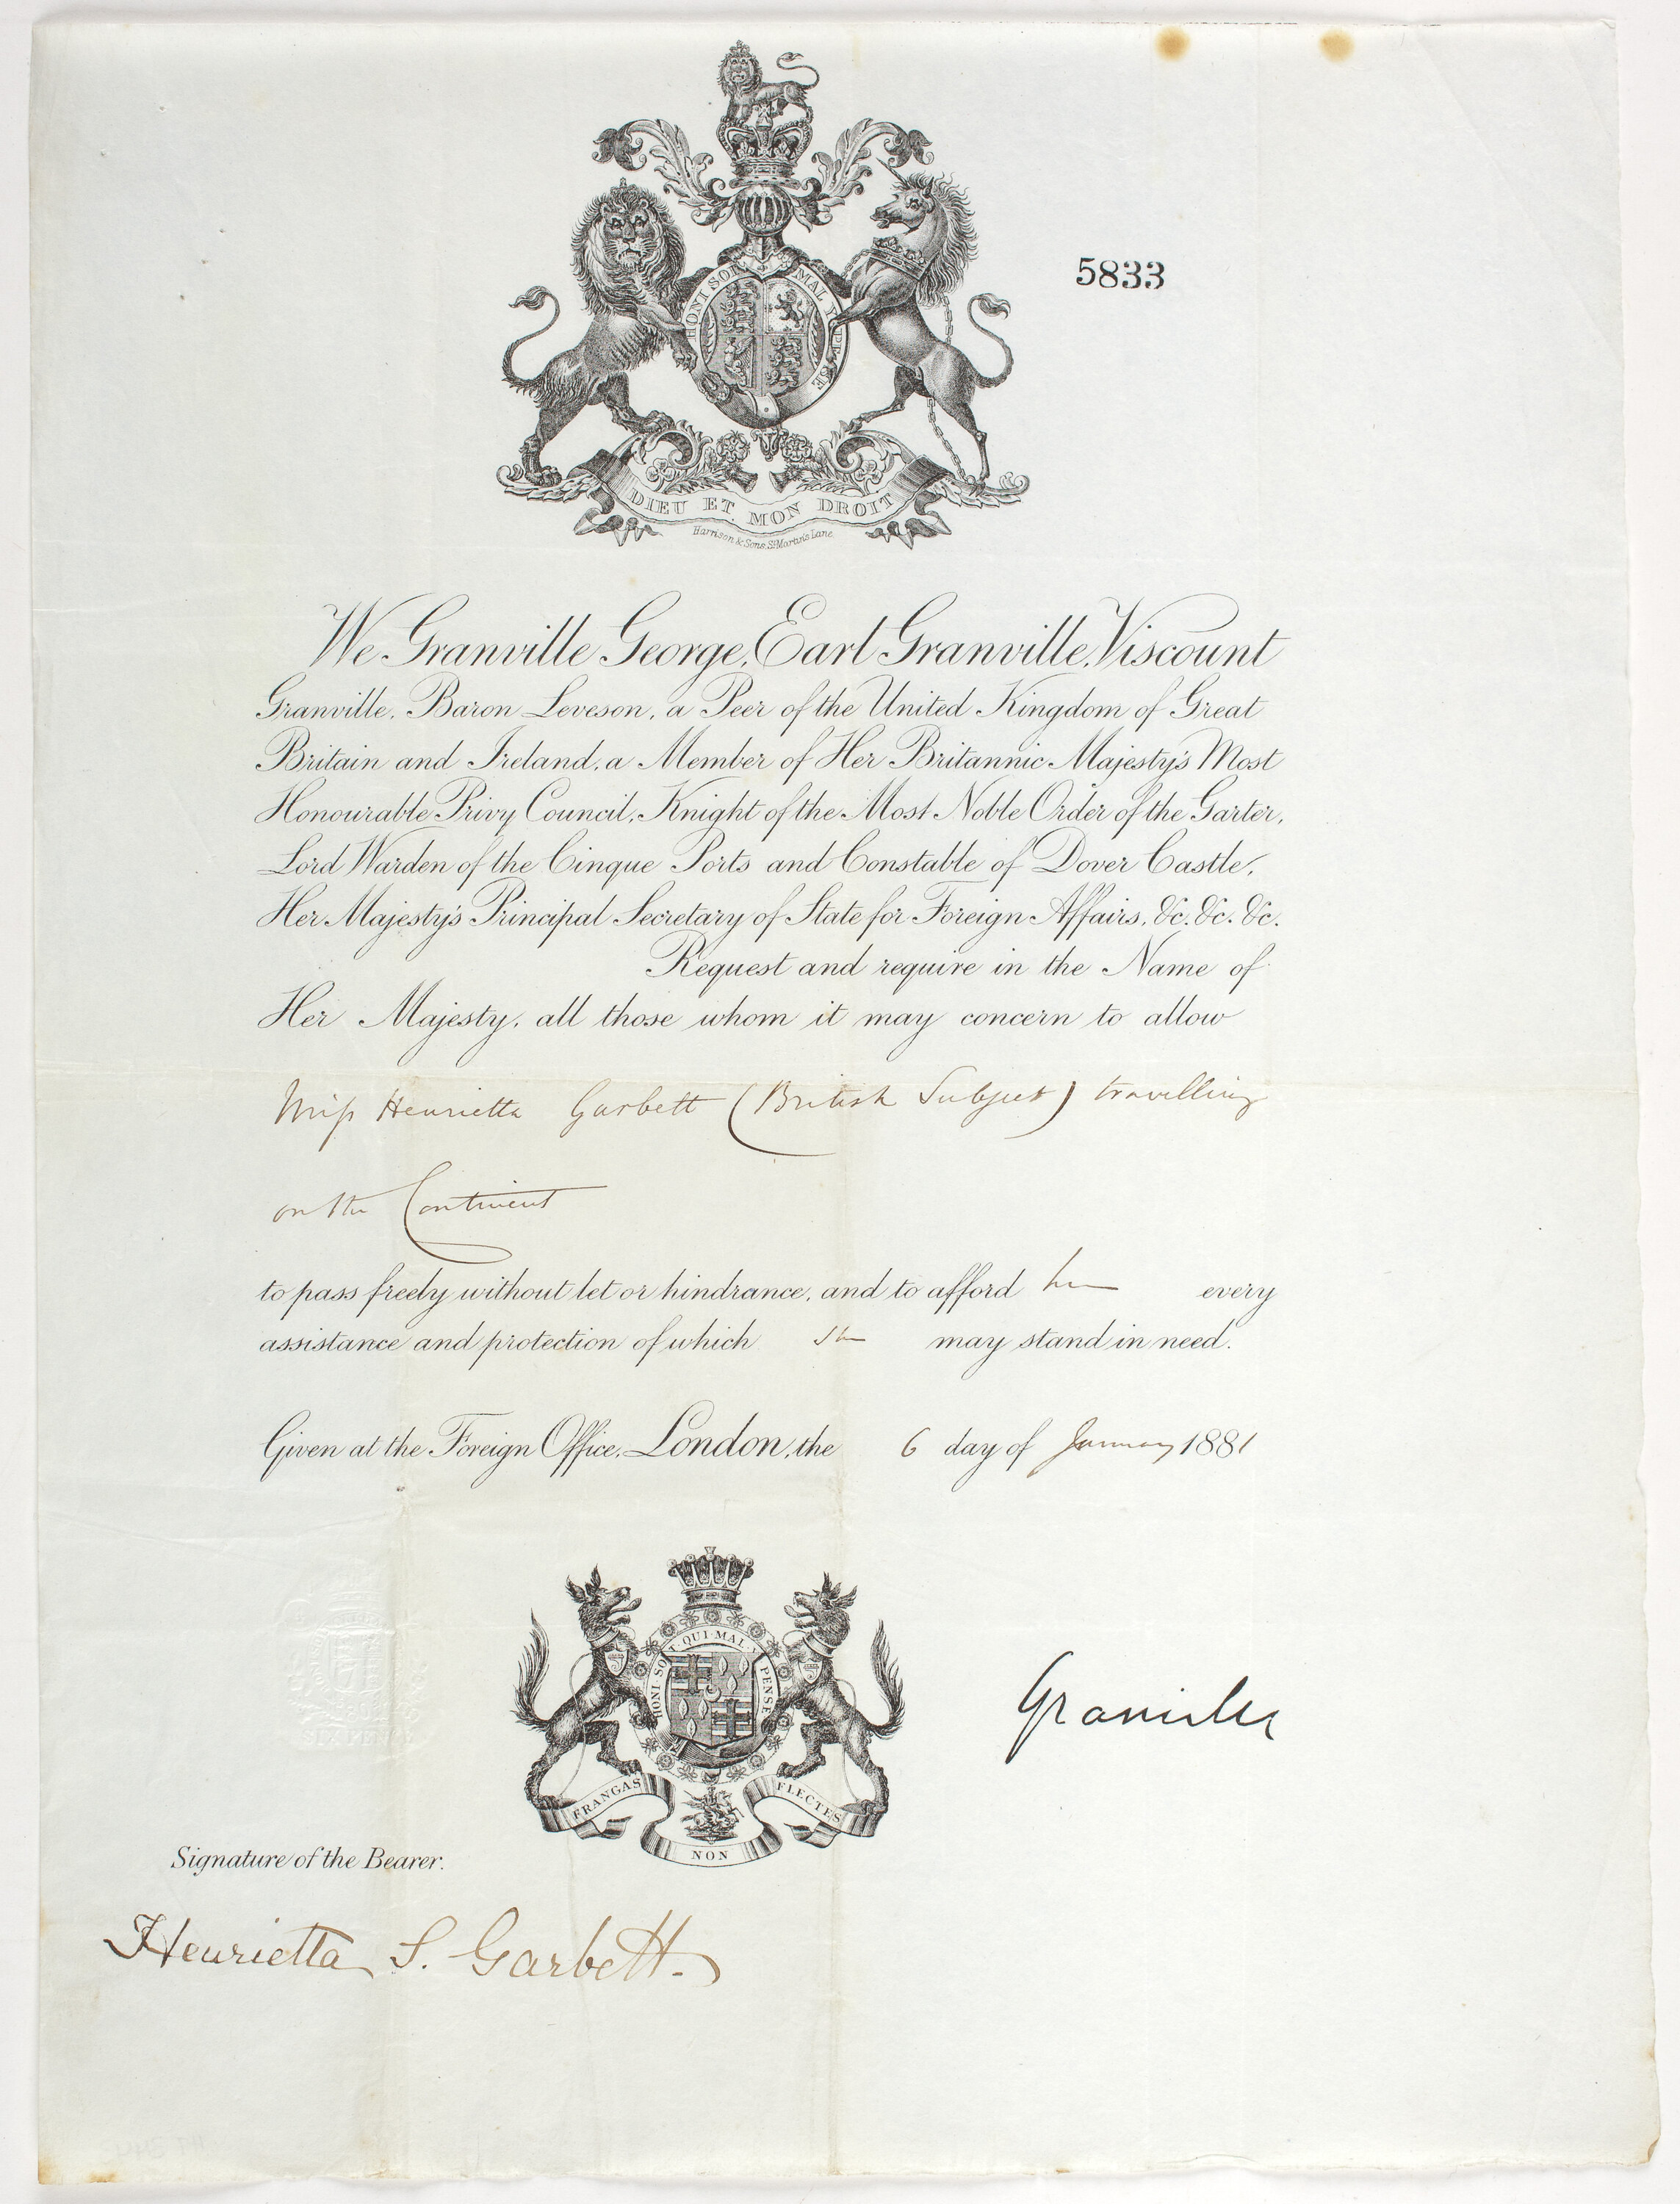 5833
HONI SOI MAL Y PENSE
DIEU ET MON DROIT
Harrison & Sons, St. Martin's Lane
We Granville George, Earl Granville, Viscount
Granville, Baron Leveson, a Peer of the United Kingdom of Great
Britain and Ireland, a Member of Her Britannic Majesty's Most
Honourable Privy Council, Knight of the Most Noble Order of the Garter,
Lord Warden of the Cinque Ports and Constable of Dover Castle,
Her Majesty's Principal Secretary of State for Foreign Affairs, &c. &c. &c.
Request and require in the Name of
Her Majesty, all those whom it may concern to allow
Miss Henrietta Garbett (British Subject) travelling
on the Continent
to pass freely without let or hindrance, and to afford her every
assistance and protection of which she may stand in need.
Given at the Foreign Office, London, the 6 day of January 1881
HONI SOIT QUI MAL Y PENSE
SIX PENCE
Granville
FRANGAS NON FLECTES
Signature of the Bearer.
Henrietta S. Garbett.